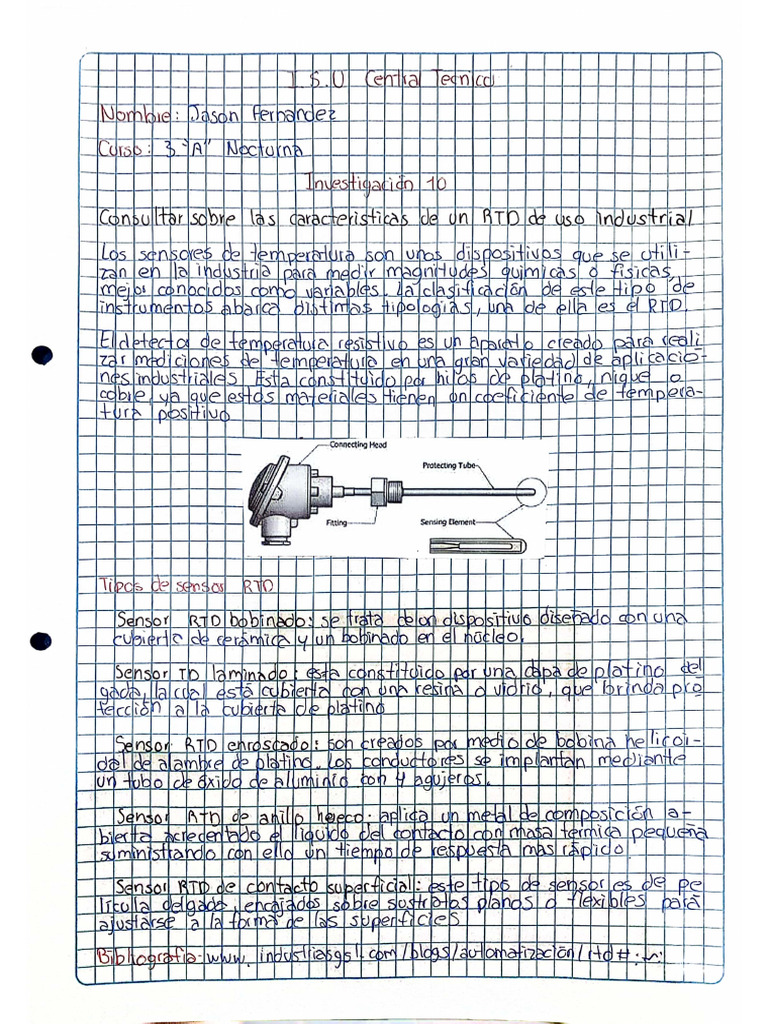 I.S.U Central Tecnico
Nombre: Jason Fernandez
Curso: 3 "A" Nocturna
Investigación 10
Consultar sobre las caracteristicas de un RTD de uso industrial
Los sensores de temperatura son unos dispositivos que se utili-
zan en la industria para medir magnitudes quimicas o fisicas,
mejor conocidos como variables. La clasificación de este tipo de
instrumentos abarca distintas tipologias, una de ella es el RTD.
El detecto de temperatura resistivo es un aparato creado para reali
zar mediciones de temperatura en una gran variedad de aplicacio-
nes industriales. Esta constituido por hilos de platino, nique o
cobre, ya que estos materiales tienen un coeficiente de tempera-
tura positivo
Connecting Head
Protecting Tube
Fitting
Sensing Element
Tipos de sensor RTD
Sensor RTD bobinado: se trata de un dispositivo diseñado con una
cubierta de cerámica y un bobinado en el núcleo.
Sensor TD laminado: esta constituido por una capa de platino del
gada, la cual está cubierta con una resina o vidrio, que brinda pro
tección a la cubierta de platino
Sensor RTD enroscado: son creados por medio de bobina helicoi-
dal de alambre de platino. Los conductores se implantan mediante
un tubo de óxido de alluminio con 4 agujeros.
Sensor RTD de anillo hueco: aplica un metal de composición a-
bierta acrecentado el liquido del contacto con masa termica pequeña
suministrando con ello un tiempo de respuesta mas rápido
Sensor RTD de contacto superficial: este tipo de sensor es de pe
licula delgado, encajados sobre sustratos planos o flexibles para
ajustarse a la forma de las superficies
Bibliografia: www. industriasgsl.com/blogs/automatización/rtd#:~: